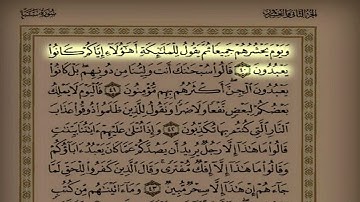 الجزء الثاني والعشرين
سورة سبإ
وَيَوْمَ يَحْشُرُهُمْ جَمِيعًا ثُمَّ يَقُولُ لِلْمَلَٰٓئِكَةِ أَهَٰٓؤُلَآءِ إِيَّاكُمْ كَانُوا۟
يَعْبُدُونَ ٤٠ قَالُوا۟ سُبْحَٰنَكَ أَنتَ وَلِيُّنَا مِن دُونِهِم بَلْ كَانُوا۟
يَعْبُدُونَ ٱلْجِنَّ أَكْثَرُهُم بِهِم مُّؤْمِنُونَ ٤١ فَٱلْيَوْمَ لَا يَمْلِكُ
بَعْضُكُمْ لِبَعْضٍ نَّفْعًا وَلَا ضَرًّا وَنَقُولُ لِلَّذِينَ ظَلَمُوا۟ ذُوقُوا۟ عَذَابَ
ٱلنَّارِ ٱلَّتِى كُنتُم بِهَا تُكَذِّبُونَ ٤٢ وَإِذَا تُتْلَىٰ عَلَيْهِمْ ءَايَٰتُنَا بَيِّنَٰتٍ
قَالُوا۟ مَا هَٰذَآ إِلَّا رَجُلٌ يُرِيدُ أَن يَصُدَّكُمْ عَمَّا كَانَ يَعْبُدُ ءَابَآؤُكُمْ
وَقَالُوا۟ مَا هَٰذَآ إِلَّآ إِفْكٌ مُّفْتَرًى وَقَالَ ٱلَّذِينَ كَفَرُوا۟ لِلْحَقِّ لَمَّا
جَآءَهُمْ إِنْ هَٰذَآ إِلَّا سِحْرٌ مُّبِينٌ ٤٣ وَمَآ ءَاتَيْنَٰهُم مِّن كُتُبٍ